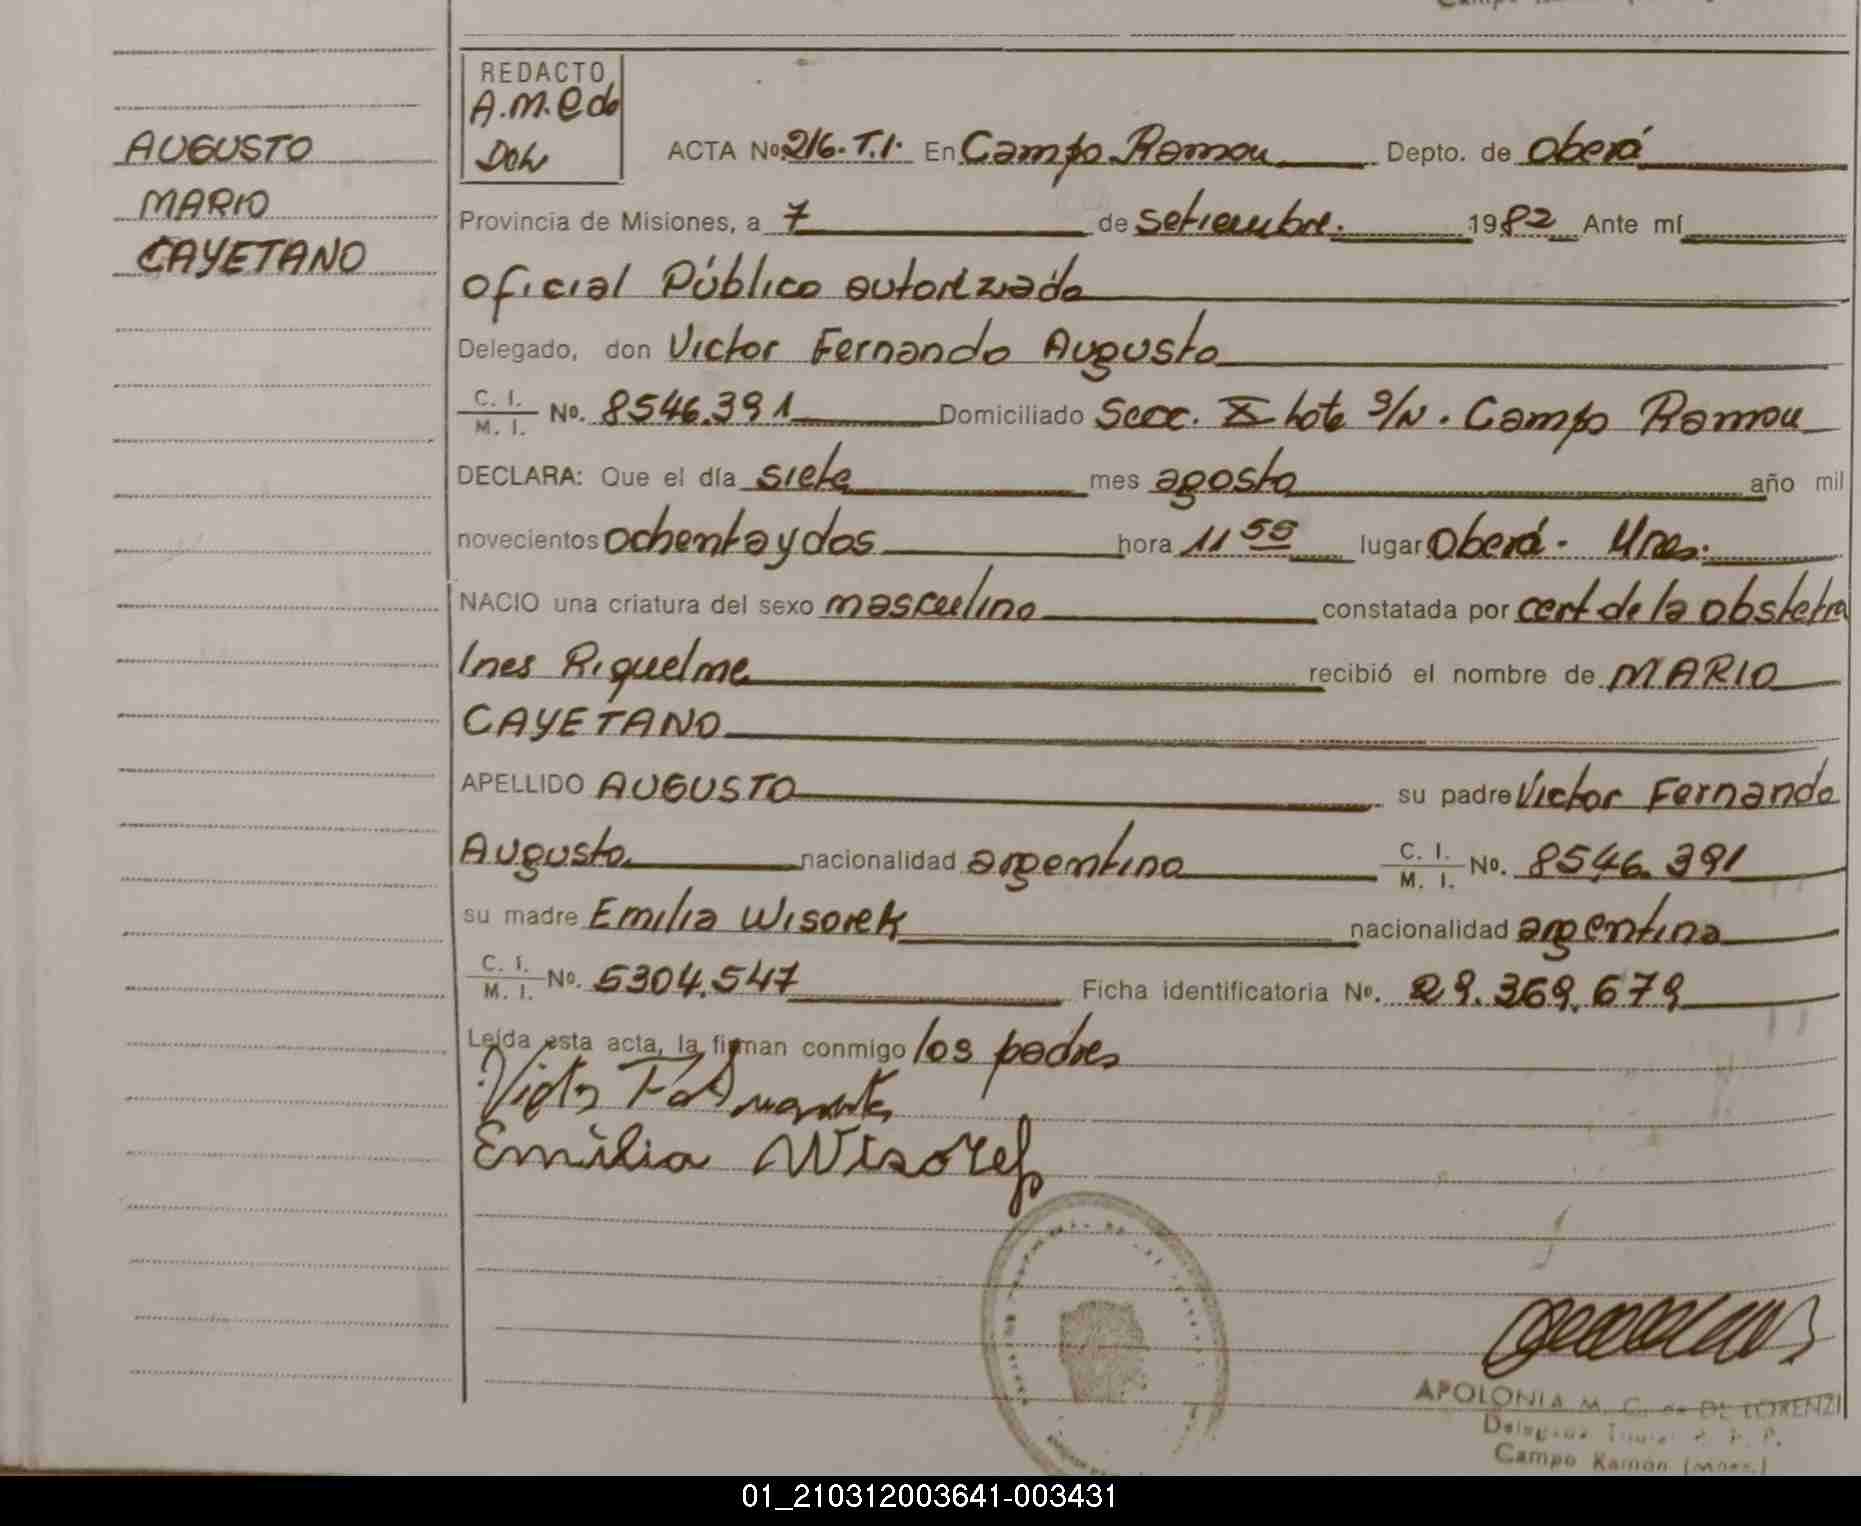 REDACTO
A.M.C de
AUGUSTO
MARIO
CAYETANO
ACTA No. 216. T.I. En Campo Ramon Depto. de Oberá
Provincia de Misiones, a 7 de setiembre. 1982 Ante mí
oficial Público autorizado
Delegado, don Victor Fernando Augusto
C. I. / M. I. No. 8546.391 Domiciliado Secc. X Lote S/N. Campo Ramon
DECLARA: Que el día siete mes agosto año mil
novecientos ochenta y dos hora 11 55 lugar Oberá - Mnes.
NACIO una criatura del sexo masculino constatada por cert de la obstetra
Ines Riquelme recibió el nombre de MARIO
CAYETANO
APELLIDO AUGUSTO su padre Victor Fernando
Augusto nacionalidad argentino C. I. / M. I. No. 8546.391
su madre Emilia Wisorek nacionalidad argentina
C. I. / M. I. No. 5304.547 Ficha identificatoria No. 29.369.679
Leída esta acta, la firman conmigo los padres
Victor
Emilia Wisorek
APOLONIA M. C. de DE LORENZI
Campo Ramón (Mnes.)
01_210312003641-003431